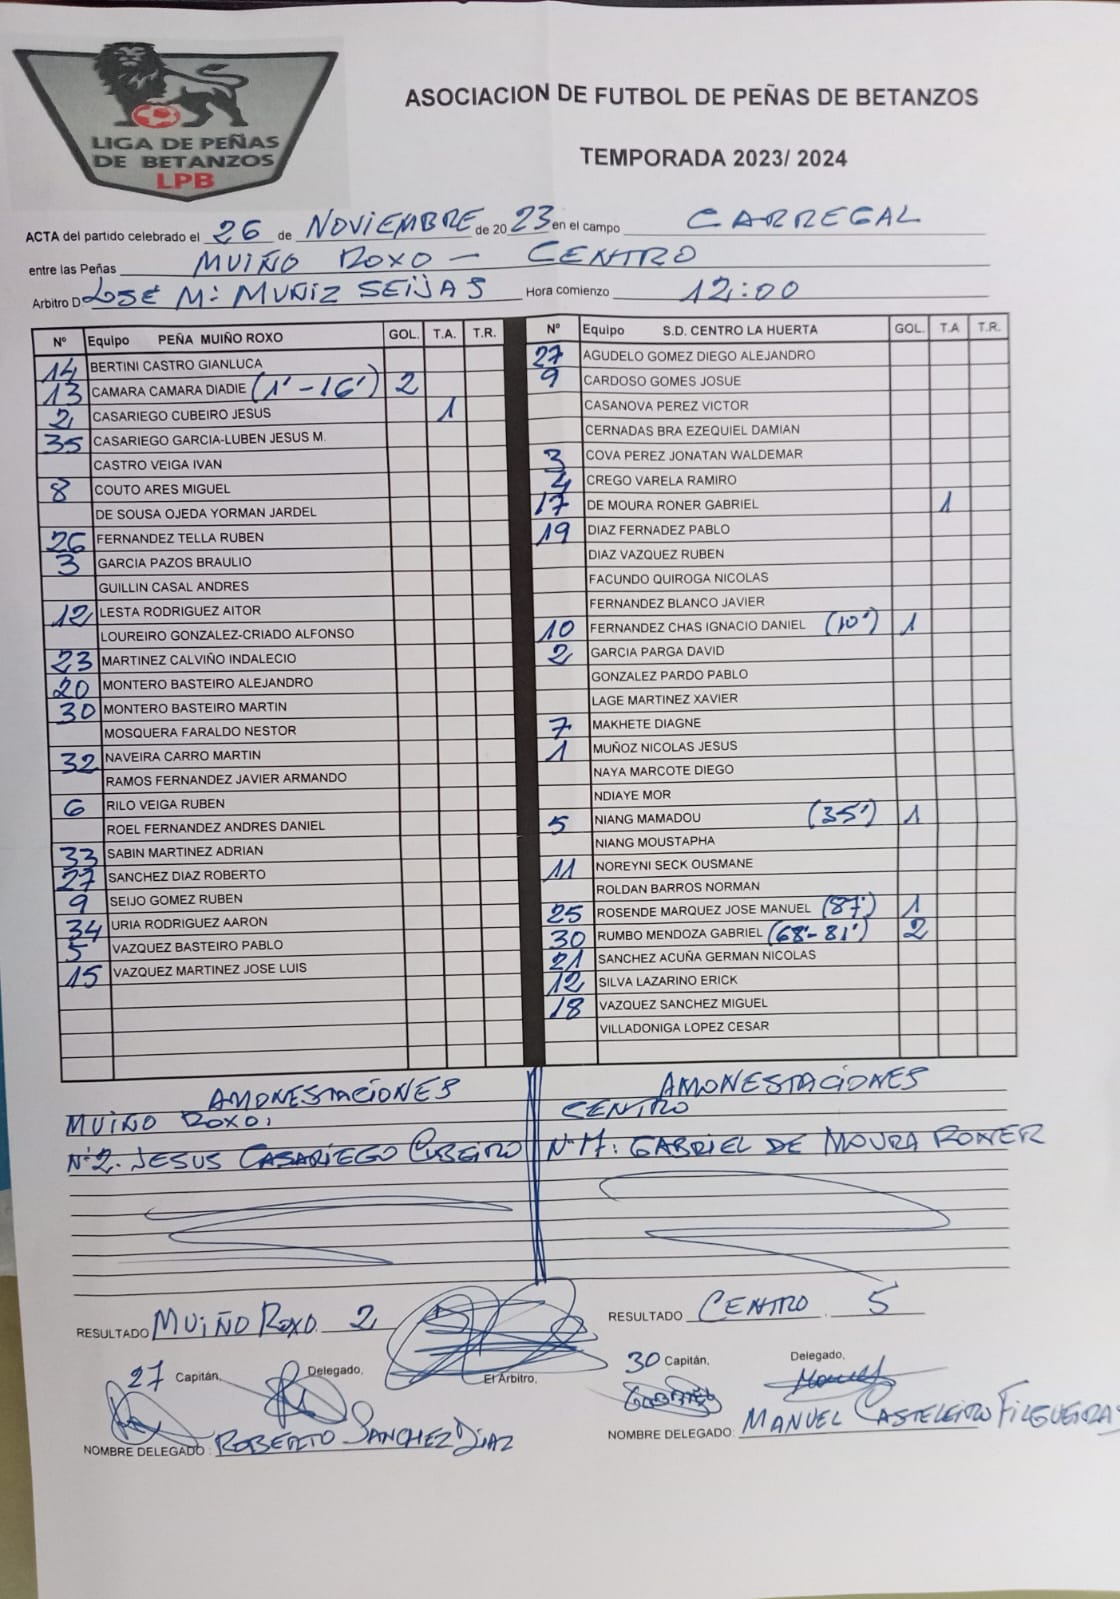 LIGA DE PEÑAS
DE BETANZOS
LPB
ASOCIACION DE FUTBOL DE PEÑAS DE BETANZOS
TEMPORADA 2023/ 2024
ACTA del partido celebrado el 26 de NOVIEMBRE de 2023 en el campo CARREGAL
entre las Peñas MUIÑO ROXO - CENTRO
Arbitro D JOSÉ Mª MUÑIZ SEIJAS Hora comienzo 12:00
Nº Equipo PEÑA MUIÑO ROXO GOL. T.A. T.R.
14 BERTINI CASTRO GIANLUCA
13 CAMARA CAMARA DIADIE (1'-16') 2
2 CASARIEGO CUBEIRO JESUS 1
35 CASARIEGO GARCIA-LUBEN JESUS M.
CASTRO VEIGA IVAN
8 COUTO ARES MIGUEL
DE SOUSA OJEDA YORMAN JARDEL
26 FERNANDEZ TELLA RUBEN
3 GARCIA PAZOS BRAULIO
GUILLIN CASAL ANDRES
12 LESTA RODRIGUEZ AITOR
LOUREIRO GONZALEZ-CRIADO ALFONSO
23 MARTINEZ CALVIÑO INDALECIO
20 MONTERO BASTEIRO ALEJANDRO
30 MONTERO BASTEIRO MARTIN
MOSQUERA FARALDO NESTOR
32 NAVEIRA CARRO MARTIN
RAMOS FERNANDEZ JAVIER ARMANDO
6 RILO VEIGA RUBEN
ROEL FERNANDEZ ANDRES DANIEL
33 SABIN MARTINEZ ADRIAN
27 SANCHEZ DIAZ ROBERTO
9 SEIJO GOMEZ RUBEN
34 URIA RODRIGUEZ AARON
5 VAZQUEZ BASTEIRO PABLO
15 VAZQUEZ MARTINEZ JOSE LUIS
Nº Equipo S.D. CENTRO LA HUERTA GOL. T.A T.R.
27 AGUDELO GOMEZ DIEGO ALEJANDRO
9 CARDOSO GOMES JOSUE
CASANOVA PEREZ VICTOR
CERNADAS BRA EZEQUIEL DAMIAN
3 COVA PEREZ JONATAN WALDEMAR
4 CREGO VARELA RAMIRO
17 DE MOURA RONER GABRIEL 1
19 DIAZ FERNADEZ PABLO
DIAZ VAZQUEZ RUBEN
FACUNDO QUIROGA NICOLAS
FERNANDEZ BLANCO JAVIER
10 FERNANDEZ CHAS IGNACIO DANIEL (10') 1
2 GARCIA PARGA DAVID
GONZALEZ PARDO PABLO
LAGE MARTINEZ XAVIER
7 MAKHETE DIAGNE
1 MUÑOZ NICOLAS JESUS
NAYA MARCOTE DIEGO
NDIAYE MOR
5 NIANG MAMADOU (35') 1
NIANG MOUSTAPHA
11 NOREYNI SECK OUSMANE
ROLDAN BARROS NORMAN
25 ROSENDE MARQUEZ JOSE MANUEL (87') 1
30 RUMBO MENDOZA GABRIEL (68'-81') 2
21 SANCHEZ ACUÑA GERMAN NICOLAS
12 SILVA LAZARINO ERICK
18 VAZQUEZ SANCHEZ MIGUEL
VILLADONIGA LOPEZ CESAR
AMONESTACIONES
MUIÑO ROXO:
Nº2. JESUS CASARIEGO CUBEIRO
AMONESTACIONES
CENTRO
Nº17: GABRIEL DE MOURA RONER
RESULTADO MUIÑO ROXO. 2
RESULTADO CENTRO. 5
27 Capitán, Delegado, El Arbitro, 30 Capitán, Delegado,
NOMBRE DELEGADO: ROBERTO SANCHEZ DIAZ
NOMBRE DELEGADO: MANUEL CASTELEIRO FILGUEIRAS